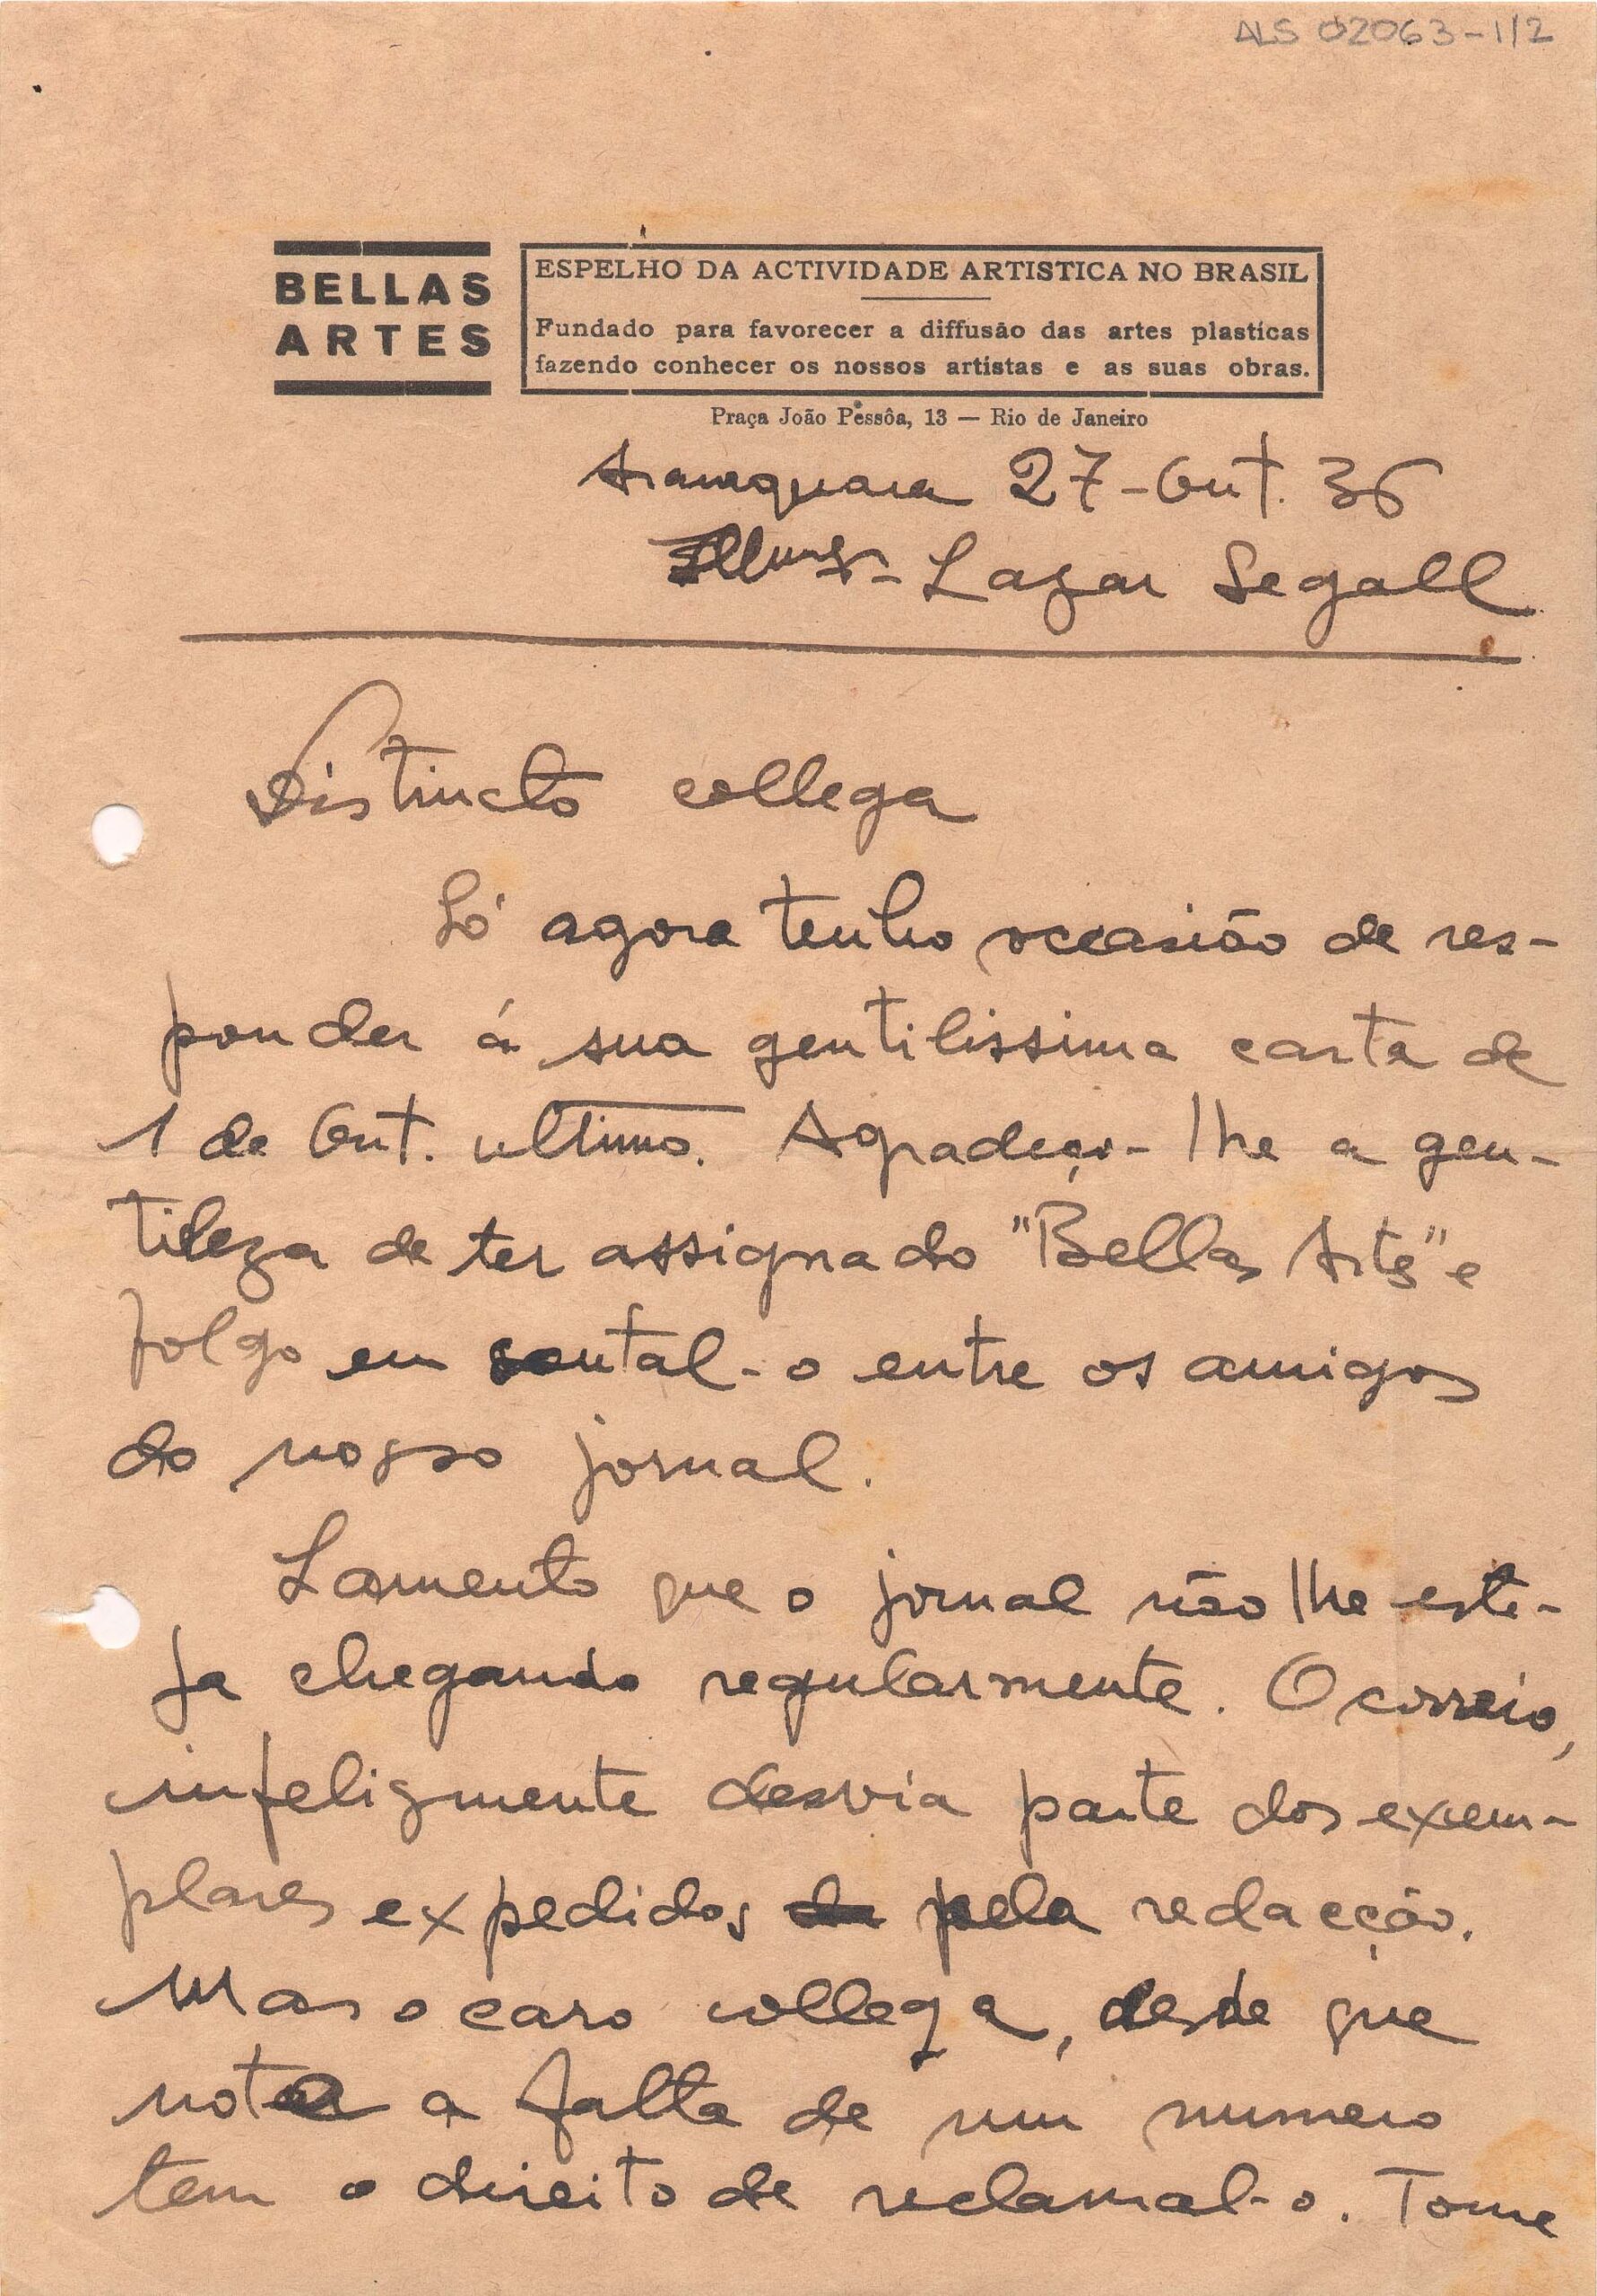 ALS 02063-1/2
BELLAS
ARTES
ESPELHO DA ACTIVIDADE ARTISTICA NO BRASIL
Fundado para favorecer a diffusão das artes plasticas
fazendo conhecer os nossos artistas e as suas obras.
Praça João Pessôa, 13 — Rio de Janeiro
Araraquara 27-Out. 36
Lazar Segall
Distincto collega
Só agora tenho occasião de res-
ponder á sua gentilissima carta de
1 de Out. ultimo. Agradeço-lhe a gen-
tileza de ter assignado "Bellas Artes" e
folgo em contal-o entre os amigos
do nosso jornal.
Lamento que o jornal não lhe este-
ja chegando regularmente. O correio,
infelizmente desvia parte dos exem-
plares expedidos pela redacção.
Mas o caro collega, desde que
note a falta de um numero
tem o direito de reclamal-o. Tome